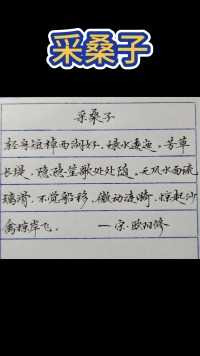 采桑子
采桑子
轻舟短棹西湖好，绿水逶迤，芳草
长堤，隐隐笙歌处处随，无风水面琉
璃滑，不觉船移，微动涟漪，惊起沙
禽掠岸飞。 一宋·欧阳修